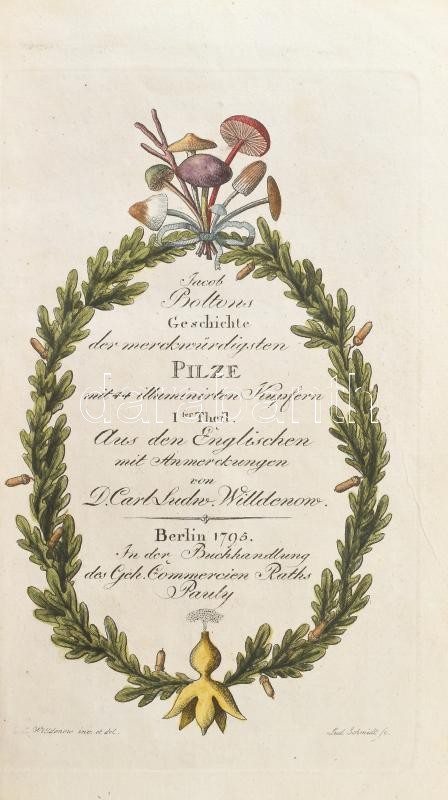 Jacob
Boltons
Geschichte
der merckwürdigsten
PILZE
mit 44 illuminirten Kupfern
I ter Theil.
Aus den Englischen
mit Anmerckungen
von
D. Carl Ludw. Willdenow.
Berlin 1795.
In der Buchhandlung
des Geh. Commercien Raths
Pauly
Willdenow inv. et del.
Lud. Schmidt fc.
darabanth